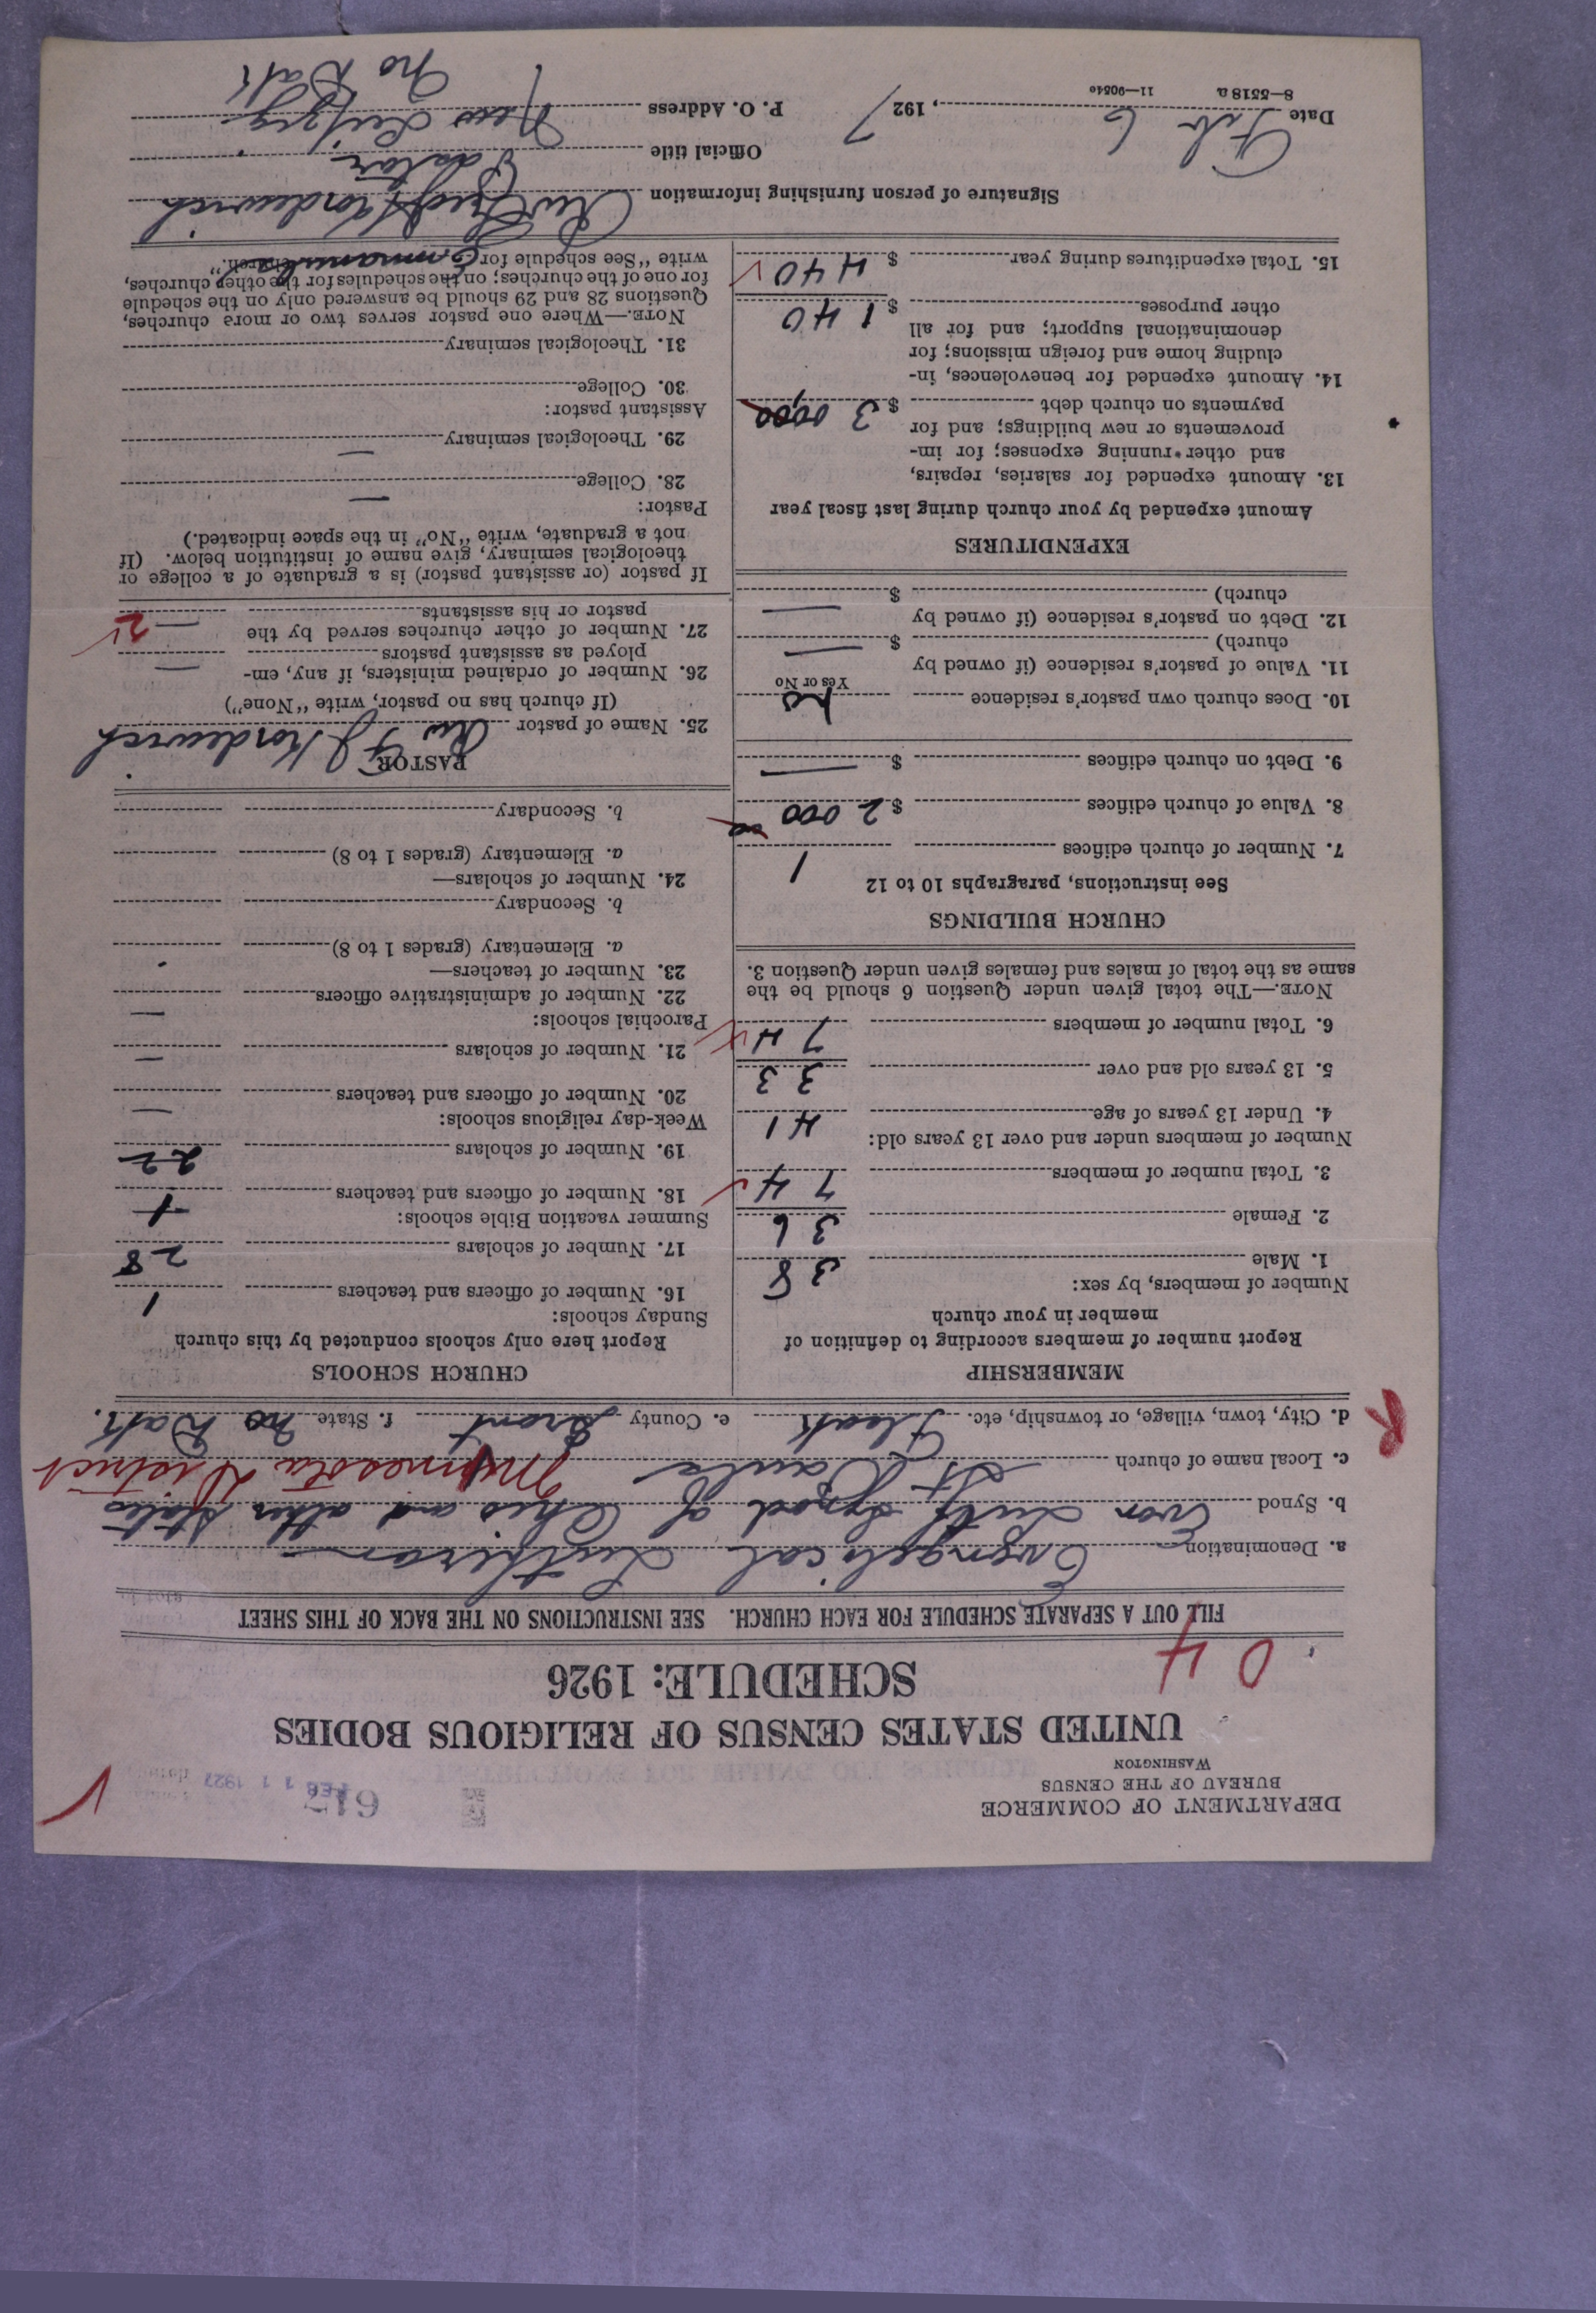 DEPARTMENT OF COMMERCE
BUREAU OF THE CENSUS
WASHINGTON
617
FEB 11 1927
UNITED STATES CENSUS OF RELIGIOUS BODIES
SCHEDULE: 1926
04
FILL OUT A SEPARATE SCHEDULE FOR EACH CHURCH. SEE INSTRUCTIONS ON THE BACK OF THIS SHEET
a. Denomination Evangelical Lutheran
b. Synod Evan Luth Synod of Ohio and other States
c. Local name of church St Pauls Minnesota District
d. City, town, village, or township, etc. e. County Grant f. State No Dak.
R
MEMBERSHIP
Report number of members according to definition of
member in your church
Number of members, by sex:
1. Male 38
2. Female 36
3. Total number of members 74
Number of members under and over 13 years old:
4. Under 13 years of age 41
5. 13 years old and over 33
6. Total number of members 74
NOTE.—The total given under Question 6 should be the
same as the total of males and females given under Question 3.
CHURCH BUILDINGS
See instructions, paragraphs 10 to 12
7. Number of church edifices 1
8. Value of church edifices $ 2000
9. Debt on church edifices $ —
10. Does church own pastor's residence no
Yes or No
11. Value of pastor's residence (if owned by
church) $ —
12. Debt on pastor's residence (if owned by
church) $ —
EXPENDITURES
Amount expended by your church during last fiscal year
13. Amount expended for salaries, repairs,
and other running expenses; for im-
provements or new buildings; and for
payments on church debt $ 300
14. Amount expended for benevolences, in-
cluding home and foreign missions; for
denominational support; and for all
other purposes $ 140
15. Total expenditures during year $ 440
CHURCH SCHOOLS
Report here only schools conducted by this church
Sunday schools:
16. Number of officers and teachers 1
17. Number of scholars 28
Summer vacation Bible schools:
18. Number of officers and teachers 1
19. Number of scholars 22
Week-day religious schools:
20. Number of officers and teachers —
21. Number of scholars —
Parochial schools:
22. Number of administrative officers —
23. Number of teachers—
a. Elementary (grades 1 to 8)
b. Secondary
24. Number of scholars—
a. Elementary (grades 1 to 8)
b. Secondary
PASTOR
25. Name of pastor Rev F J
(If church has no pastor, write "None")
26. Number of ordained ministers, if any, em-
ployed as assistant pastors —
27. Number of other churches served by the
pastor or his assistants — 2
If pastor (or assistant pastor) is a graduate of a college or
theological seminary, give name of institution below. (If
not a graduate, write "No" in the space indicated.)
Pastor:
28. College —
29. Theological seminary —
Assistant pastor:
30. College
31. Theological seminary
NOTE.—Where one pastor serves two or more churches,
Questions 28 and 29 should be answered only on the schedule
for one of the churches; on the schedules for the other churches,
write "See schedule for Emmanuels church."
Signature of person furnishing information Rev
Official title Pastor
Date Feb 6, 1927 P. O. Address New Leipzig
No Dak
8—5518 a 11—9054c